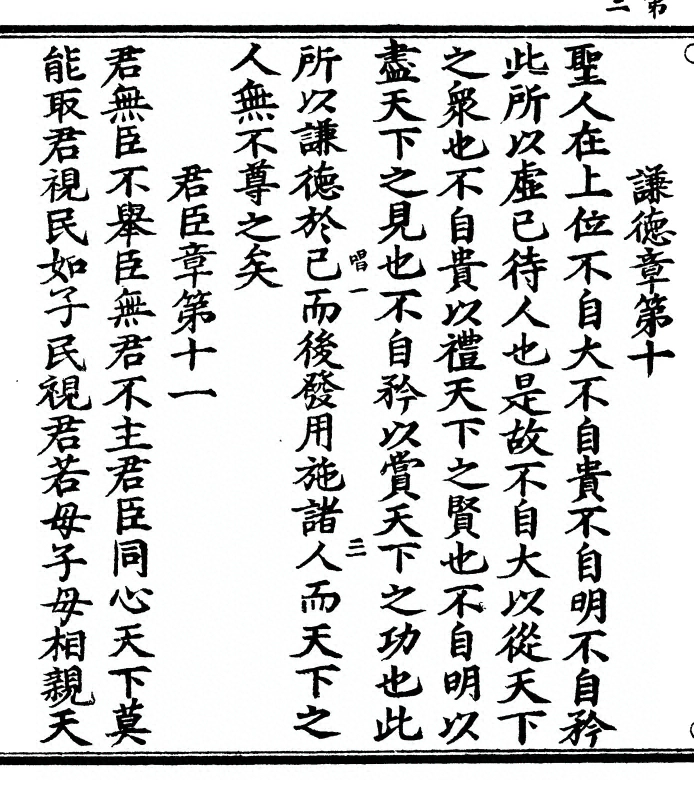 謙德章第十
聖人在上位不自大不自貴不自明不自矜
此所以虛己待人也是故不自大以從天下
之衆也不自貴以禮天下之賢也不自明以
盡天下之見也不自矜以賞天下之功也此
唱一
三
所以謙德於己而後發用施諸人而天下之
人無不尊之矣
君臣章第十一
君無臣不舉臣無君不主君臣同心天下莫
能取君視民如子民視君若母子母相親天